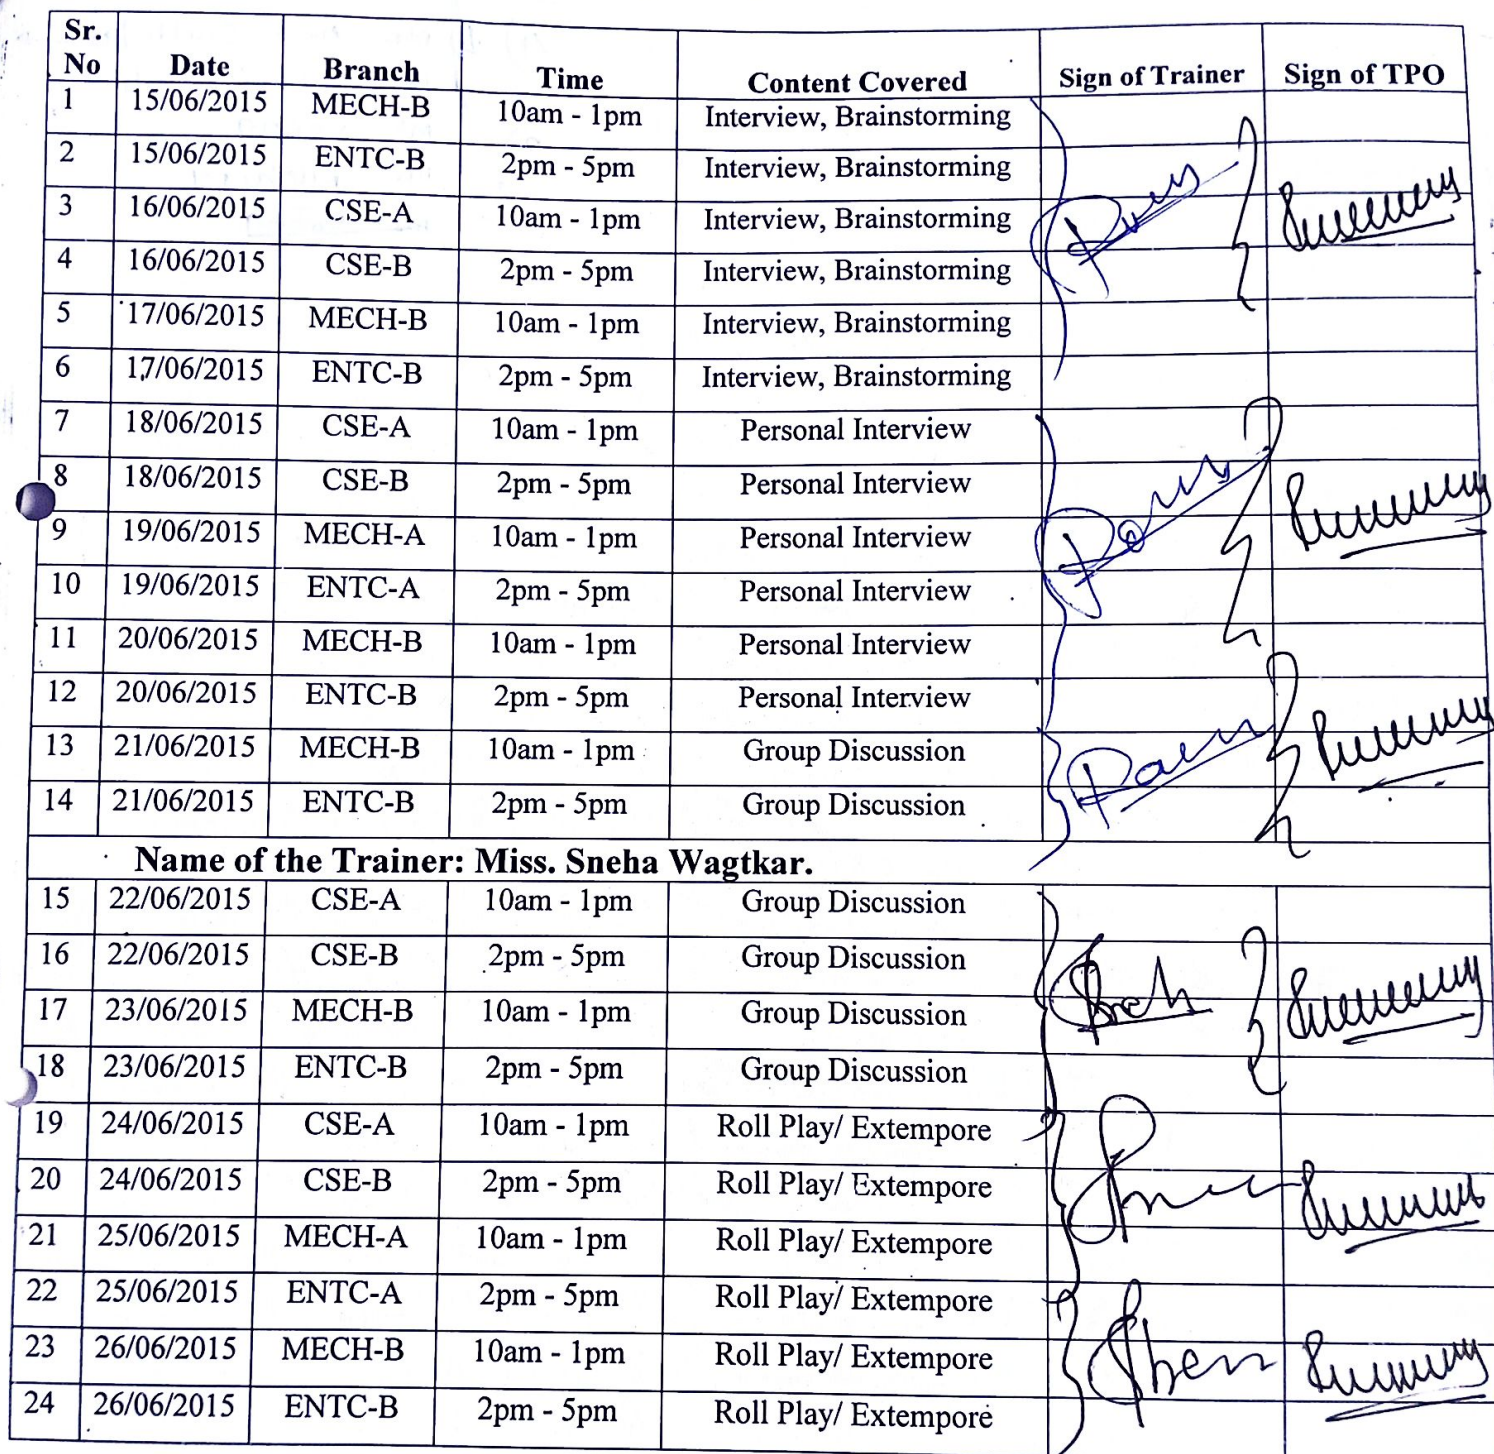 Sr. No Date Branch Time Content Covered Sign of Trainer Sign of TPO
1 15/06/2015 MECH-B 10am - 1pm Interview, Brainstorming
2 15/06/2015 ENTC-B 2pm - 5pm Interview, Brainstorming
3 16/06/2015 CSE-A 10am - 1pm Interview, Brainstorming
4 16/06/2015 CSE-B 2pm - 5pm Interview, Brainstorming
5 17/06/2015 MECH-B 10am - 1pm Interview, Brainstorming
6 17/06/2015 ENTC-B 2pm - 5pm Interview, Brainstorming
7 18/06/2015 CSE-A 10am - 1pm Personal Interview
8 18/06/2015 CSE-B 2pm - 5pm Personal Interview
9 19/06/2015 MECH-A 10am - 1pm Personal Interview
10 19/06/2015 ENTC-A 2pm - 5pm Personal Interview
11 20/06/2015 MECH-B 10am - 1pm Personal Interview
12 20/06/2015 ENTC-B 2pm - 5pm Personal Interview
13 21/06/2015 MECH-B 10am - 1pm Group Discussion
14 21/06/2015 ENTC-B 2pm - 5pm Group Discussion
Name of the Trainer: Miss. Sneha Wagtkar.
15 22/06/2015 CSE-A 10am - 1pm Group Discussion
16 22/06/2015 CSE-B 2pm - 5pm Group Discussion
17 23/06/2015 MECH-B 10am - 1pm Group Discussion
18 23/06/2015 ENTC-B 2pm - 5pm Group Discussion
19 24/06/2015 CSE-A 10am - 1pm Roll Play/ Extempore
20 24/06/2015 CSE-B 2pm - 5pm Roll Play/ Extempore
21 25/06/2015 MECH-A 10am - 1pm Roll Play/ Extempore
22 25/06/2015 ENTC-A 2pm - 5pm Roll Play/ Extempore
23 26/06/2015 MECH-B 10am - 1pm Roll Play/ Extempore
24 26/06/2015 ENTC-B 2pm - 5pm Roll Play/ Extempore